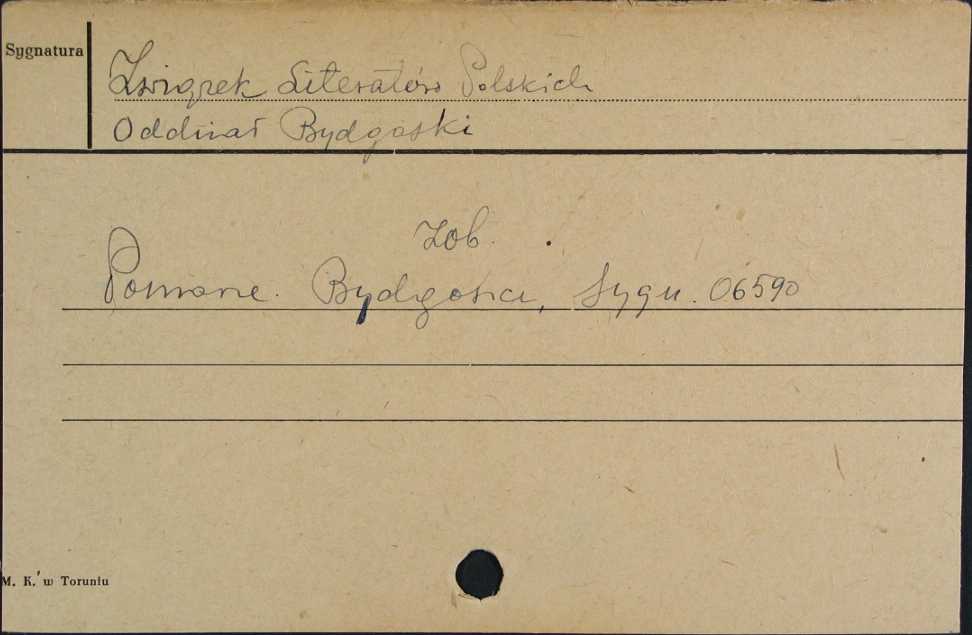 Sygnatura
Związek Literatów Polskich
Oddział Bydgoski
Zob.
Pomorze. Bydgoszcz, Sygn. 06590
M. K. w Toruniu